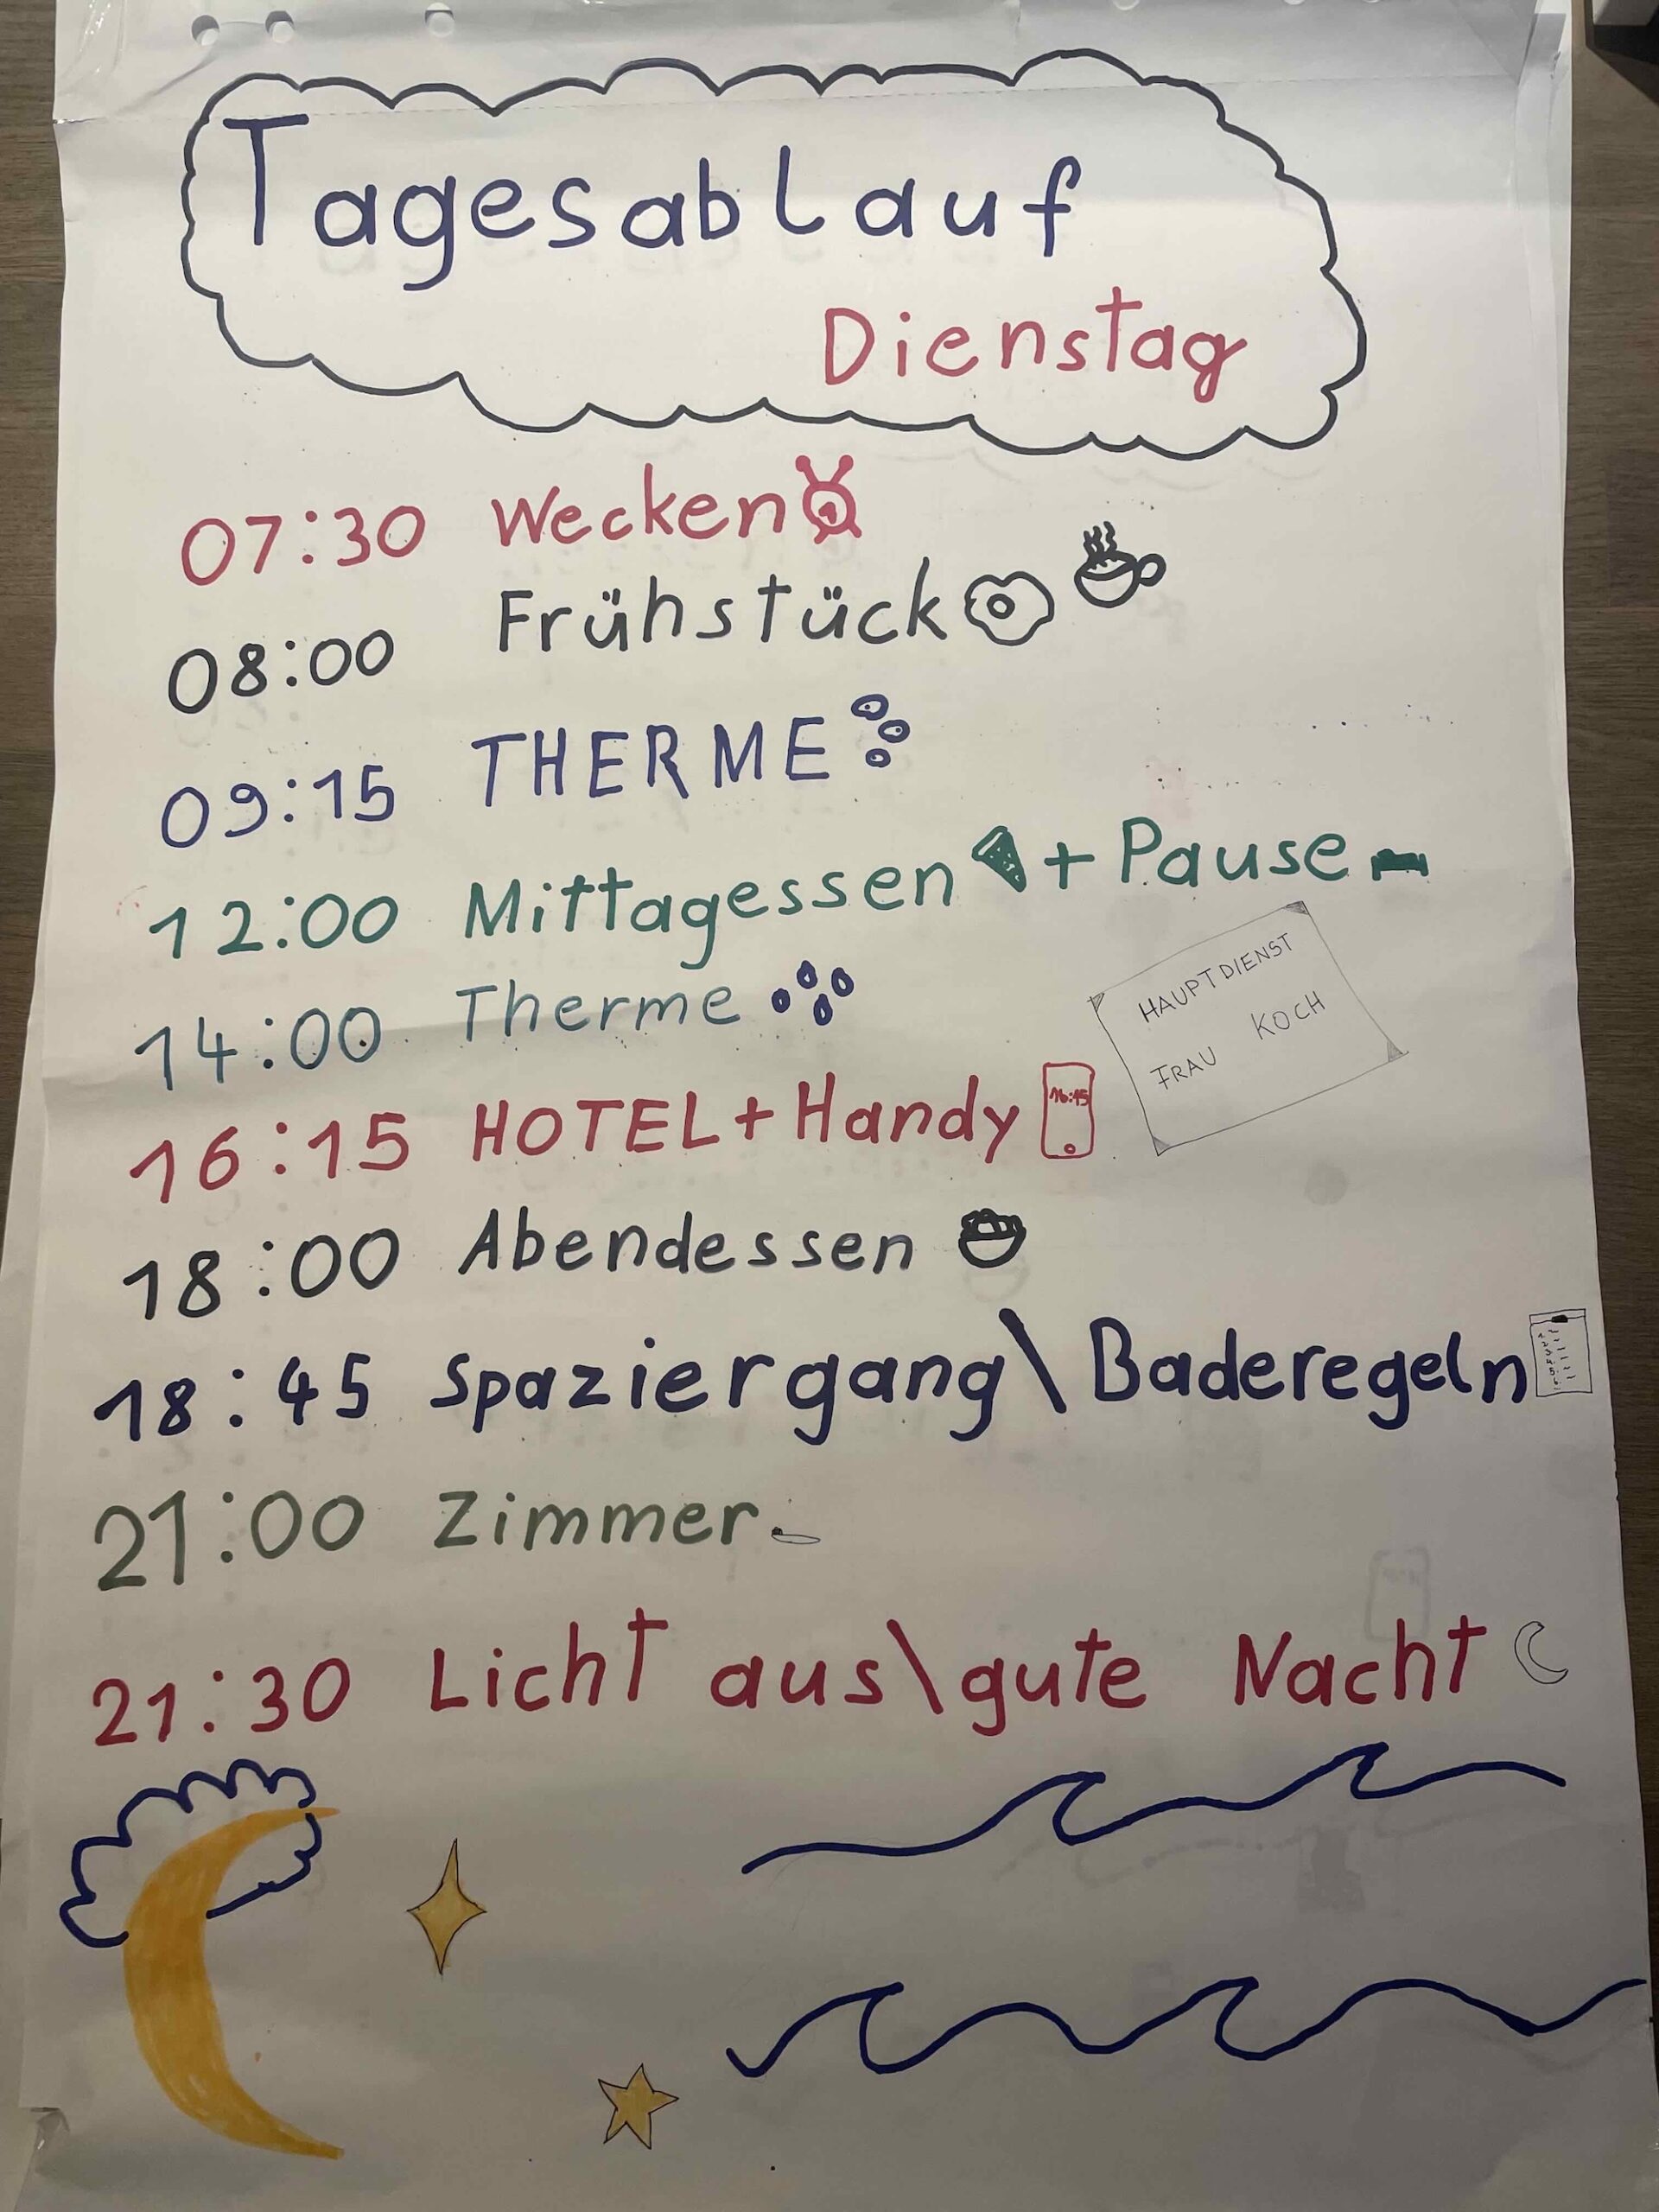 Tagesablauf
Dienstag
07:30 Wecken
08:00 Frühstück
09:15 THERME
12:00 Mittagessen + Pause
14:00 Therme
HAUPTDIENST
FRAU KOCH
16:15 HOTEL + Handy 16:15
18:00 Abendessen
18:45 Spaziergang\Baderegeln
21:00 Zimmer
21:30 Licht aus\gute Nacht